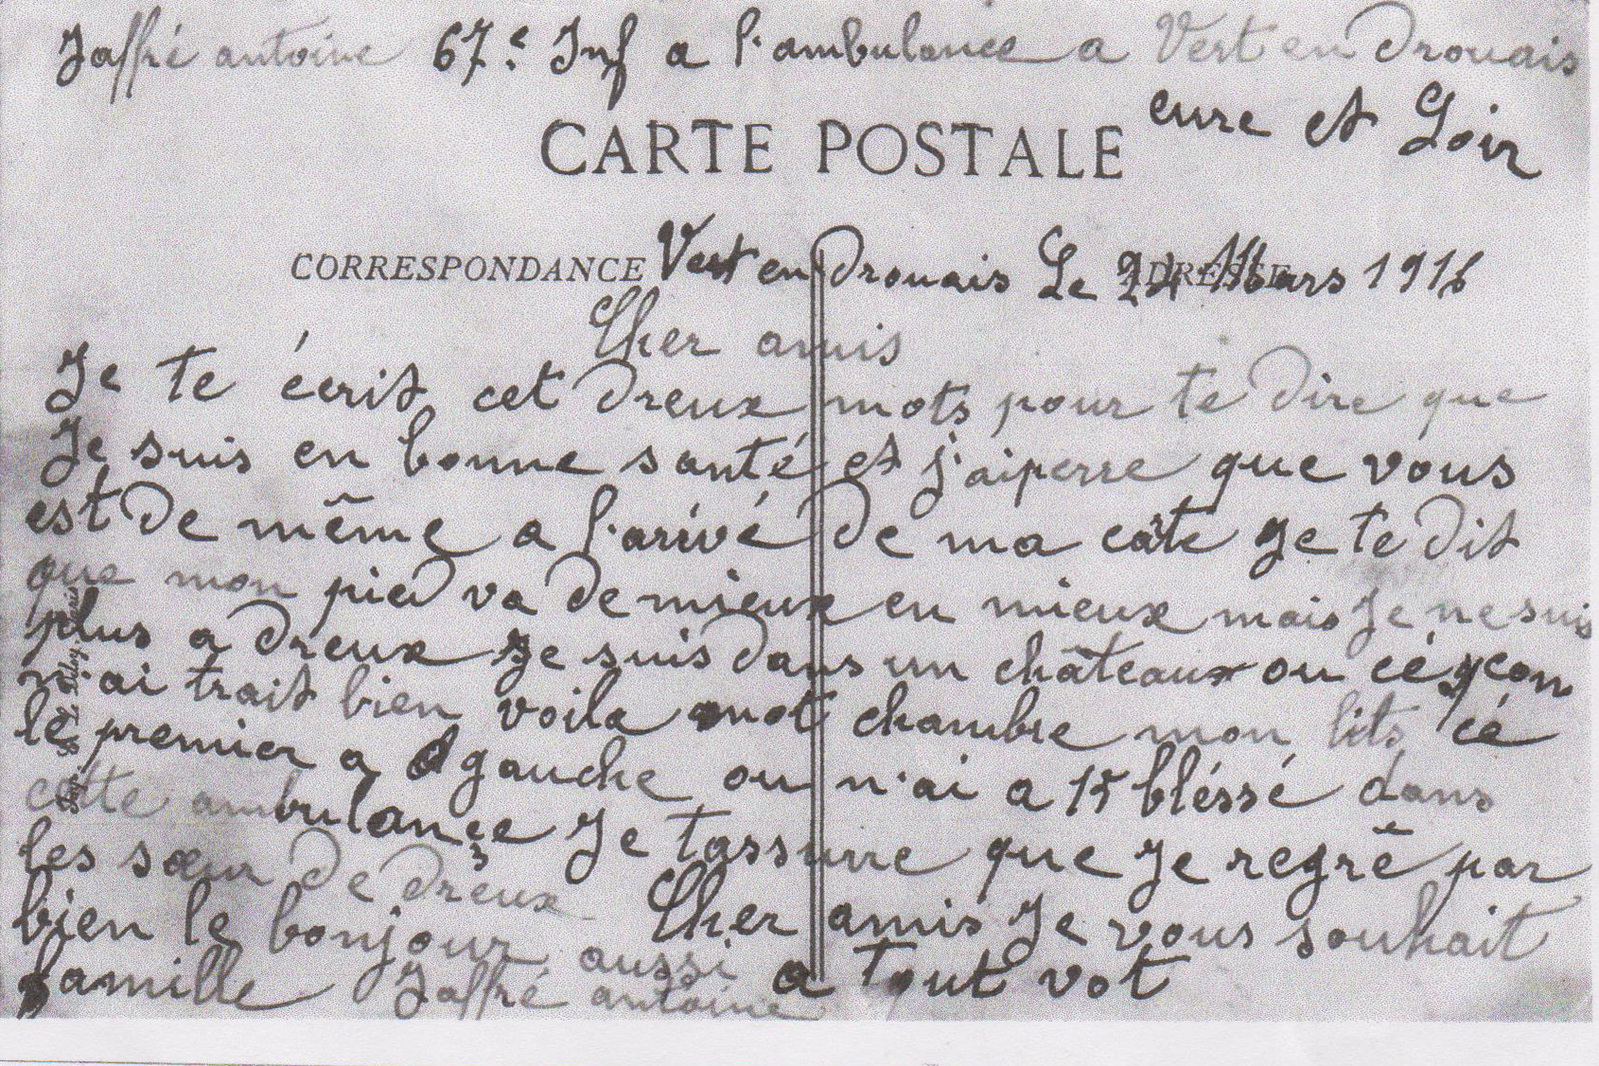 Jaffré antoine 67e Inf a l'ambulance a Vert en Drouais
eure et Loir
CARTE POSTALE
CORRESPONDANCE ADRESSE
Vert en Drouais Le 24 Mars 1916
Cher amis
Je te écrit cet dreux mots pour te dire que
Je suis en bonne santé et j'aiperre que vous
est de même a l'arivé de ma cate Je te dit
que mon pied va de mieux en mieux mais Je ne suis
plus a dreux Je suis dans un châteaux ou cé qeon
n'ai trait bien voila mot chambre mon lits cé
le premier a gauche ou n'ai a 15 bléssé dans
cette ambulance Je tassure que Je regrê par
les sœur de dreux Cher amis Je vous souhait
bien le bonjour aussi a tout vot
famille Jaffré antoine